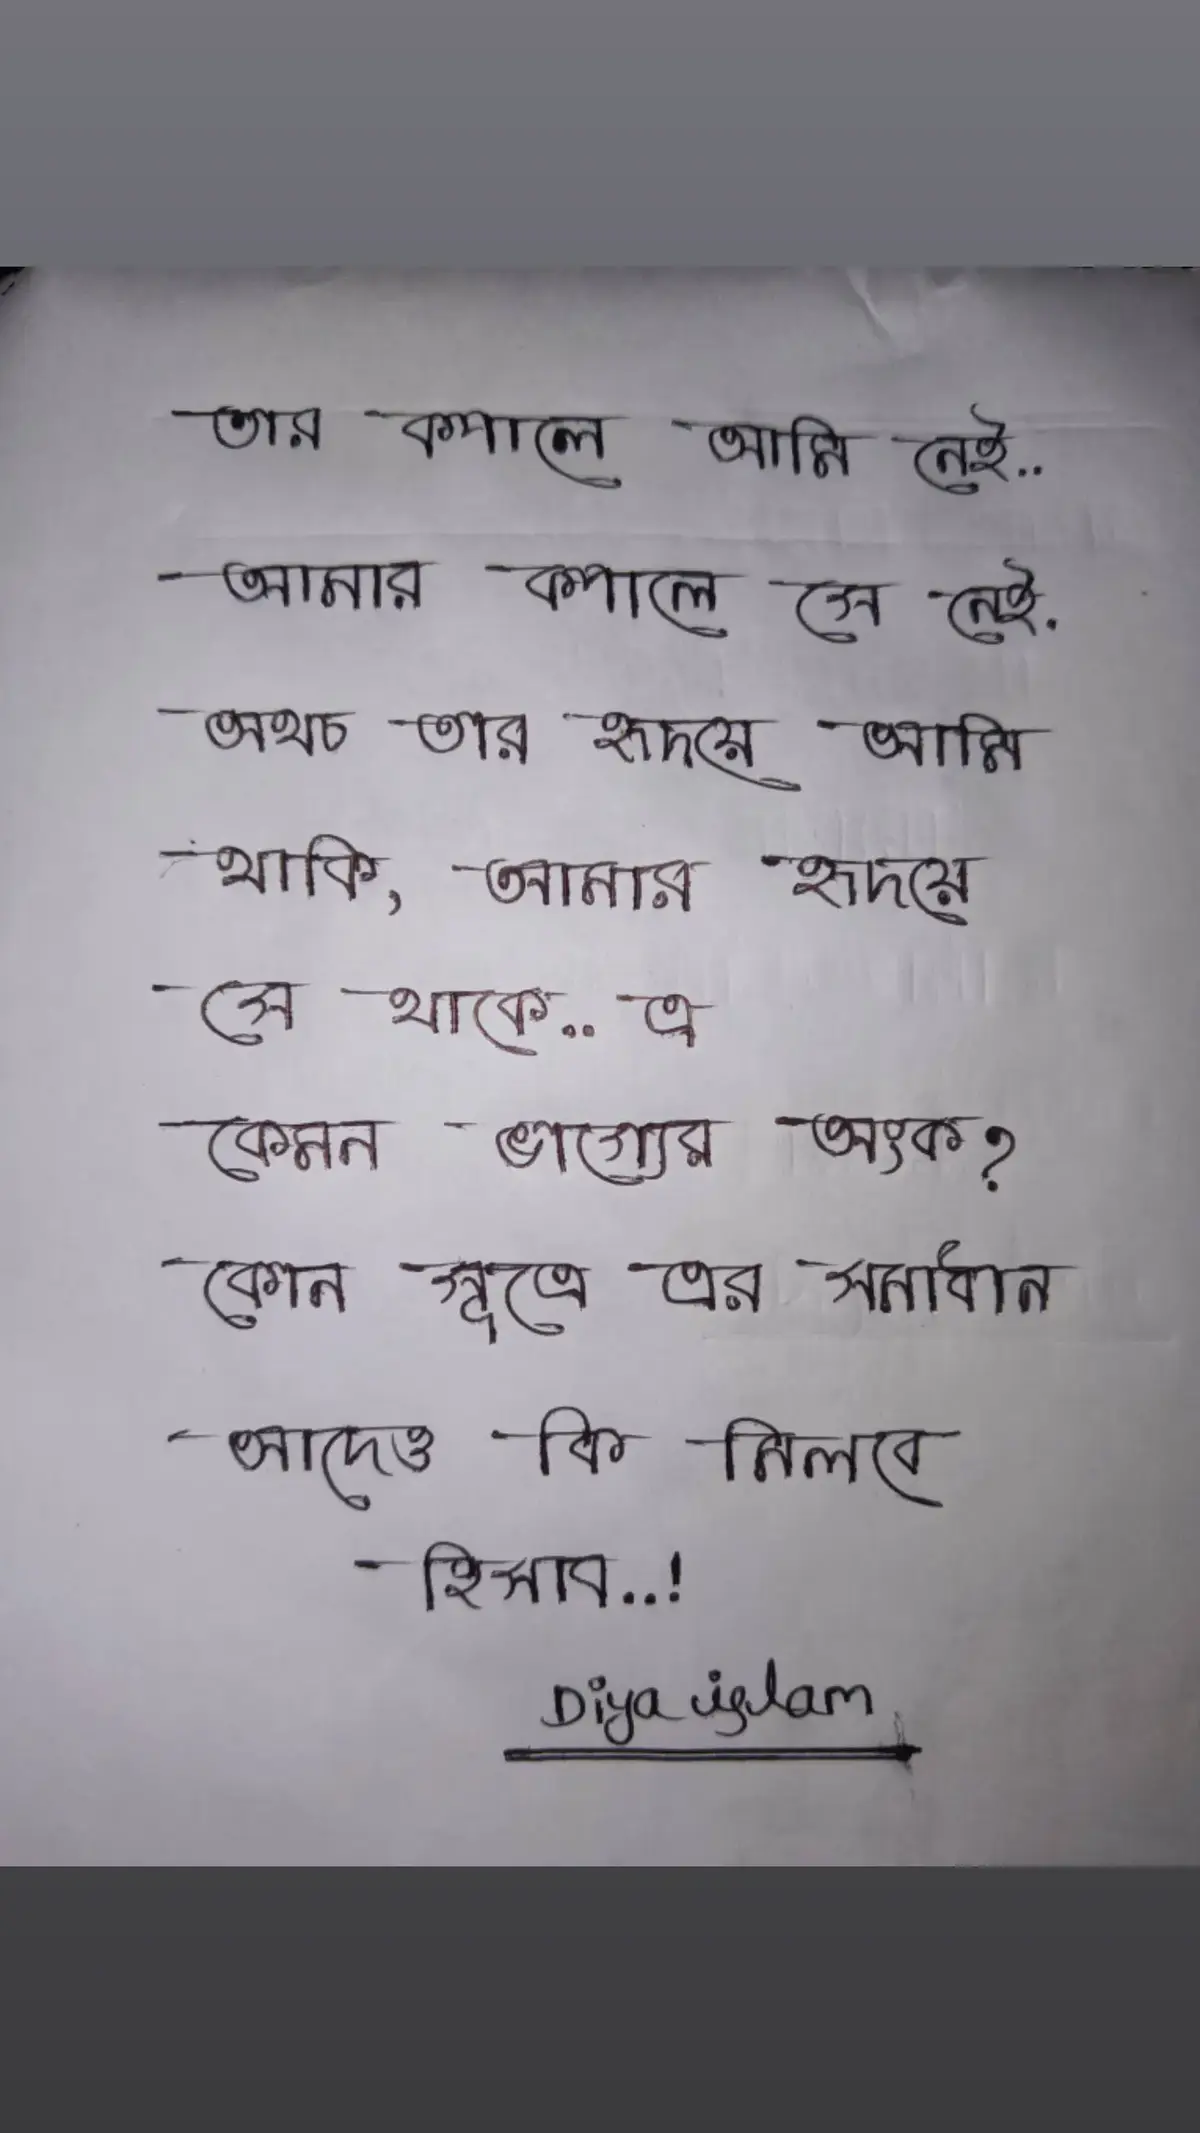 তার কপালে আমি নেই..
আমার কপালে সে নেই.
অথচ তার হৃদয়ে আমি
থাকি, আমার হৃদয়ে
সে থাকে.. এ
কেমন ভাগ্যের অংক?
কোন সূত্রে এর সমাধান
আদেও কি মিলবে
হিসাব..!
Diya islam